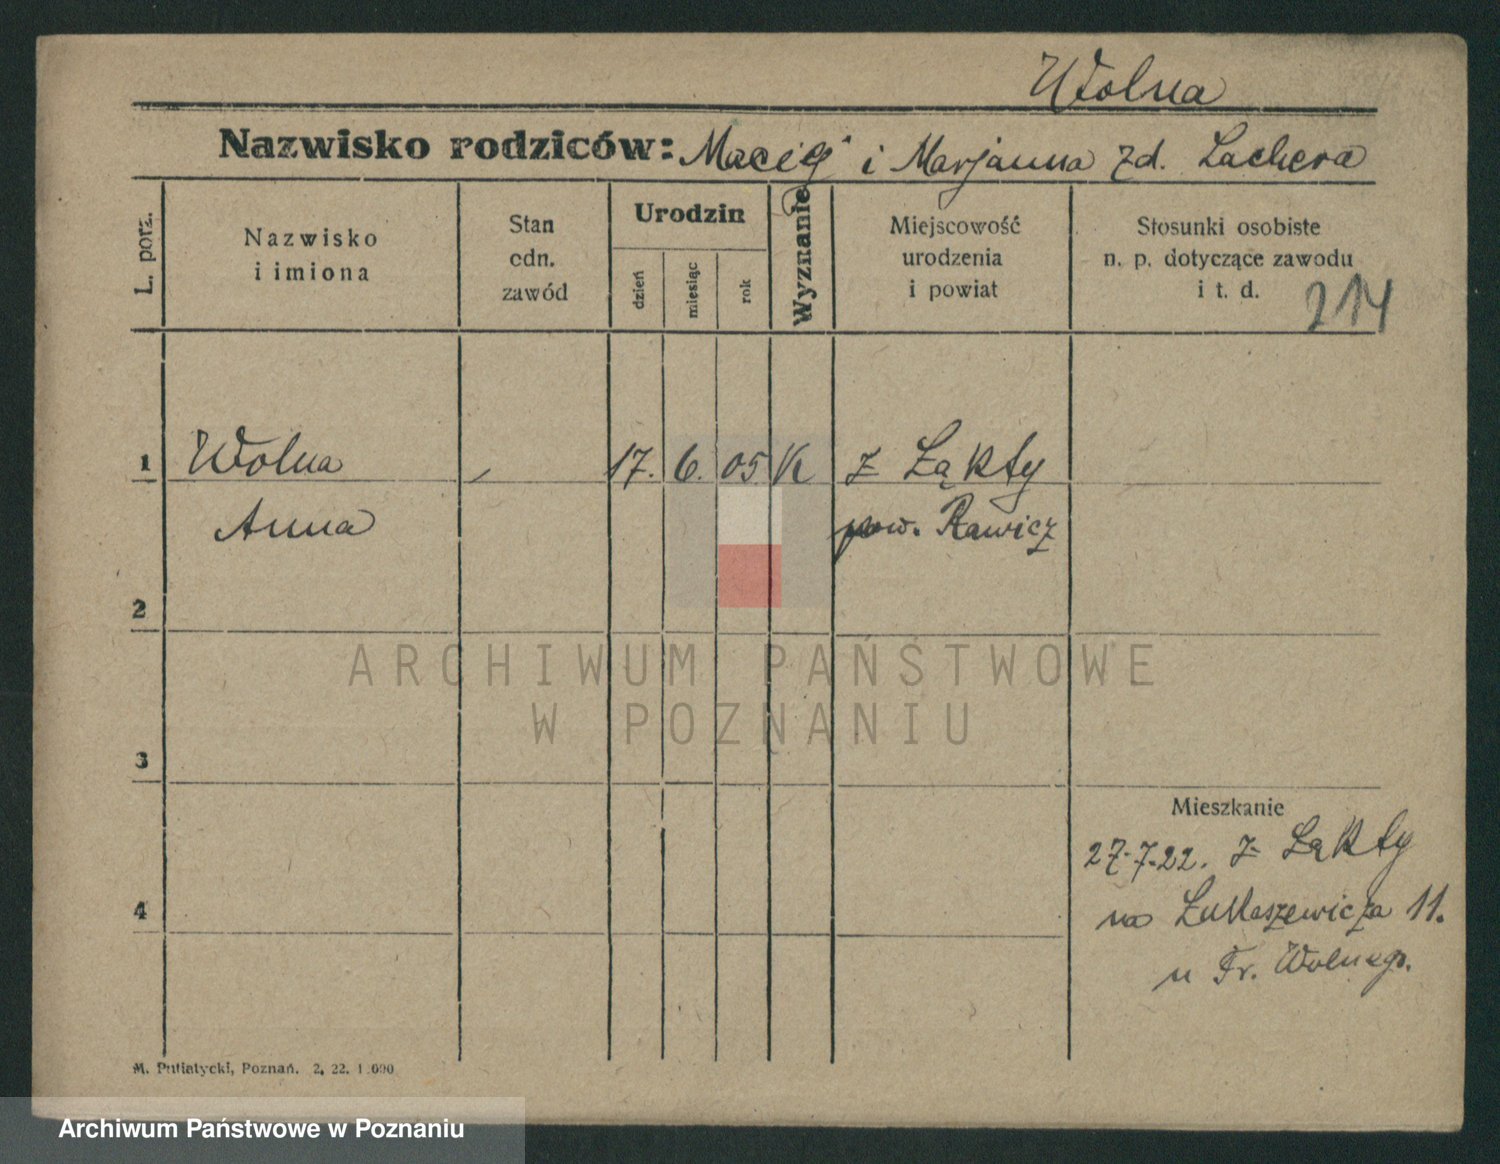 Wolna
Nazwisko rodziców: Maciej i Marjanna zd. Lachera
L. porz.
Nazwisko
i imiona
Stan
cdn.
zawód
Urodzin
dzień
miesiąc
rok
Wyznanie
Miejscowość
urodzenia
i powiat
Stosunki osobiste
n. p. dotyczące zawodu
i t. d.
214
1 Wolna 17. 6. 05 K z Łąkty
Anna pow. Rawicz
2
ARCHIWUM PAŃSTWOWE
W POZNANIU
3
Mieszkanie
27.7.22. z Łąkty
4
na Łukaszewicza 11.
u Fr. Wolnego.
M. Putiatycki, Poznań. 2. 22.
Archiwum Państwowe w Poznaniu